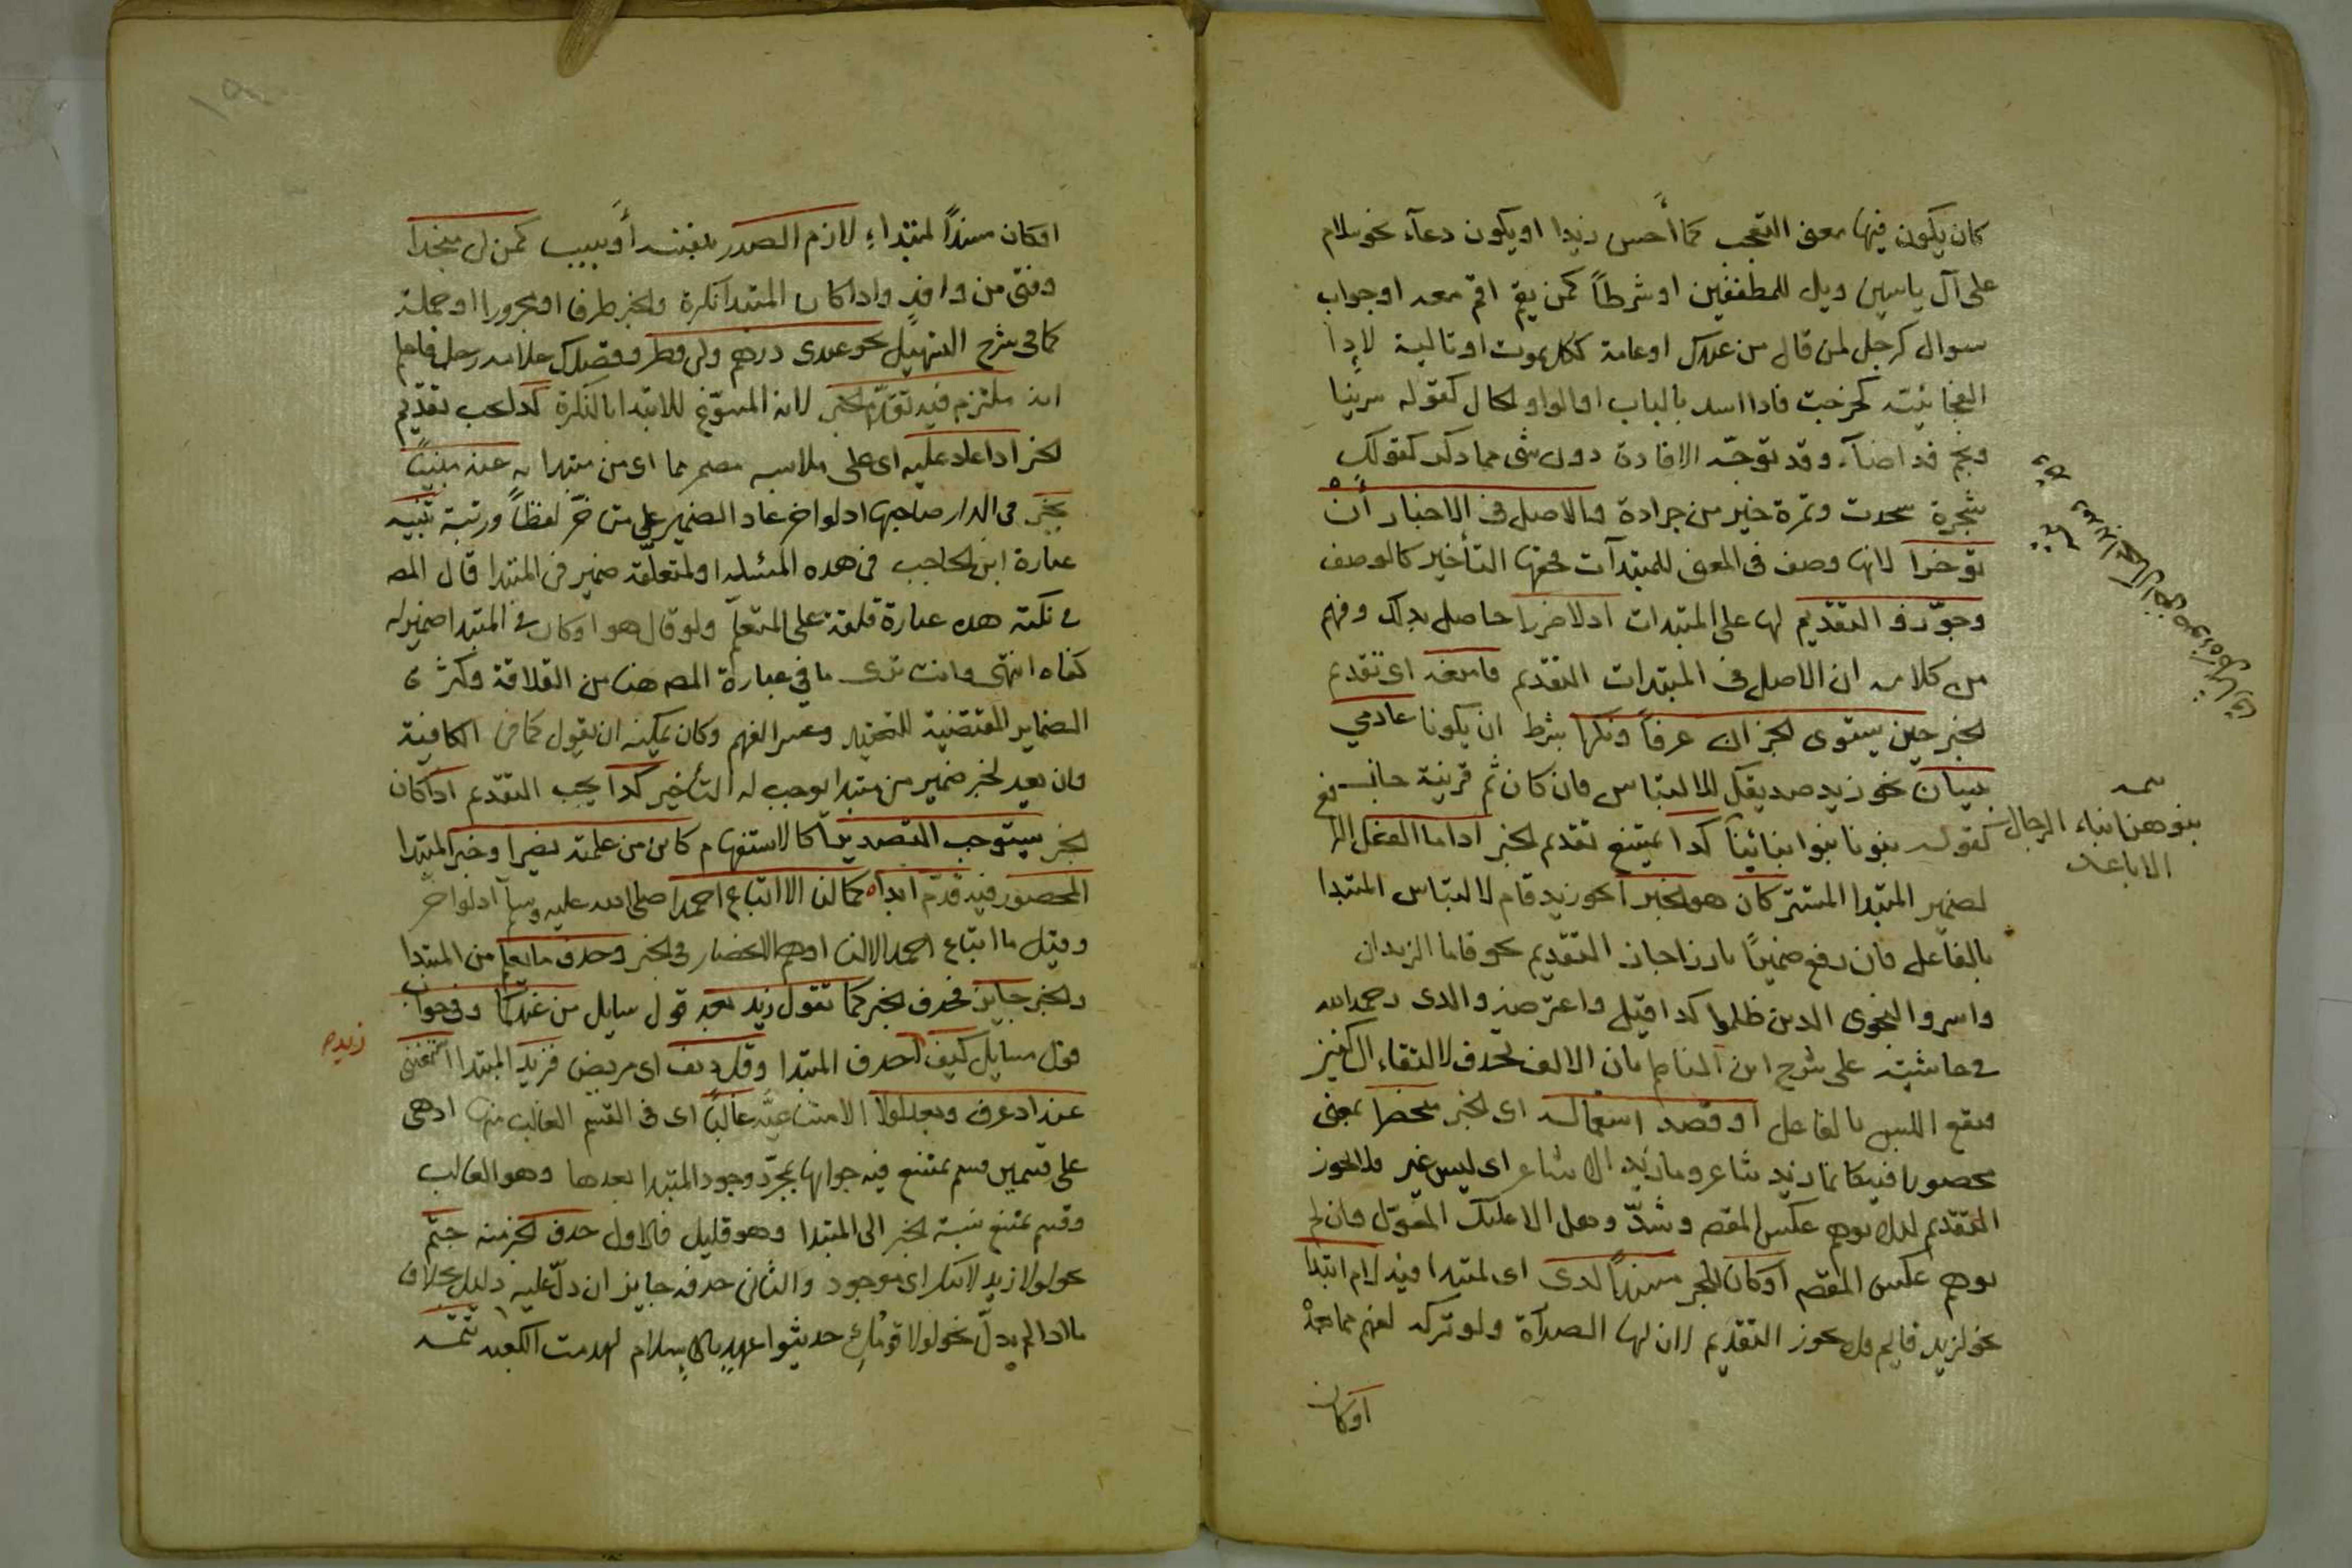 كان يكون فيها معنى التعجب كما أحسن زيدا او يكون دعآء نحو سلام
على آل ياسين ويل للمطففين او شرطاً كمن يقم اقم معه او جواب
سوال كرجل لمن قال من عندك او عامة ككل يموت او تالية لاذا
الفجائية كخرجت فاذا اسد بالباب او لواو الحال كقوله سرينا
ونجم قد اضآء وقد توجد الافادة دون شى مما ذكر كقولك
شجرة سجدت وتمرة خير من جرادة والاصل في الاخبار أن
توخرا لانها وصف في المعنى للمبتدآت فحقها التأخير كالوصف
وجوّزوا التقديم لها على المبتدات اذ لا ضررا حاصل بذلك وفهم
من كلامه ان الاصل في المبتدات التقديم فامنعه اى تقديم
الخبر حين يستوى الجزان عرفاً ونكرا بشرط ان يكونا عادمي
بيان نحو زيد صديقك للالتباس فان كان ثم قرينة جاز نحو
كقوله بنونا بنوا ابنائنا كذا يمتنع تقديم الخبر اذا ما الفعل الرا
لضمير المبتدا المستتر كان هو الخبرا نحو زيد قام لالتباس المبتدا
بالفاعل فان رفع ضميرًا بارزا جاز التقديم نحو قاما الزيدان
واسروا النجوى الذين ظلموا كذا قيل واعترضه والدى رحمه الله
في حاشيته على شرح ابن الناظم بان الالف تحذف لالتقاء الساكنين
فيقع اللبس بالفاعل او قصد استعماله اى الخبر منحصرا بمعنى
محصورا فيه كانما زيد شاعر وما زيد الا شاعر اى ليس غير فلا يجوز
التقديم لئلا يوهم عكس المقصود وشذّ وهل الا عليك المعوّل وان لم
يوهم عكس المقصود او كان الخبر مسندًا لذى اى لمبتدا فيه لام ابتدا
نحو لزيد قائم فلا يجوز التقديم لان لها الصدآرة ولو تركه لفهم مما بعده
اوكان
بنوهن ابناء الرجال
الاباعد
او كان مسنداً لمبتداءٍ لازم الصدر بنفسه أو بسبب كمن لي منجدا
وفتى من وافد واذا كان المبتدا نكرة والخبر ظرفا او مجرورا او جملة
كما في شرح التسهيل نحو عندى درهم ولى وطر وقصدك غلامه رجل فاعلم
انه ملتزم فيه تقدّم الخبر لانه المسوّغ للابتدا بالنكرة كذا يجب تقديم
الخبر اذا عاد عليه اى على ملابسه مضمر مما اى من مبتدا به عنه مبينًا
يخبر فى الدار صاحبها اذ لو اخر عاد الضمير على متاخّر لفظاً ورتبة تنبيه
عبارة ابن الحاجب فى هذه المسئلة او لمتعلّقه ضمير فى المبتدا قال المص
في نكته هذه عبارة قلقة على المتعلم ولو قال هو او كان في المبتدا ضمير له
كفاه انتهى وانت ترى ما فى عبارة المص هنا من القلاقة وكثرة
الضماير المقتضية للتعقيد وعسر الفهم وكان يمكنه ان يقول كما فى الكافية
وان يعد لخبر ضمير من مبتدا يوجب له التأخير كذا يجب التقدم اذا كان
الخبر يستوجب التصديرا كالاستفهام كاين من علمته نصيرا وخبر المبتدا
المحصور فيه قدّم ابداً كما لنا الا اتباع احمدا صلى الله عليه وسلم اذ لو اخر
وقيل ما اتباع احمد الا لنا اوهم الانحصار فى الخبر وحذف ما يعلم من المبتدا
والخبر جايز فحذف الخبر كما تقول زيد بعد قول سايل من عندكما وفي جواب
قول سايل كيف احذف المبتدا وقل دنف اى مريض فزيد المبتدا استغنى
عنه اذ عرف وبعد لولا الامتناعيّه غالباً اى فى القسم الغالب منها اذ هى
على قسمين قسم يمتنع فيه جوابها بمجرّد وجود المبتدا بعدها وهو الغالب
وقسم يمتنع نسبة الخبر الى المبتدا وهو قليل فالاول حذف الخبر منه حتم
نحو لولا زيد لاتيتك اى موجود والثانى حذفه جايز ان دلّ عليه دليل بخلاف
ما اذا لم يدلّ نحو لولا قومك حديثوا عهد بالاسلام لهدمت الكعبه تتمّه
زيد